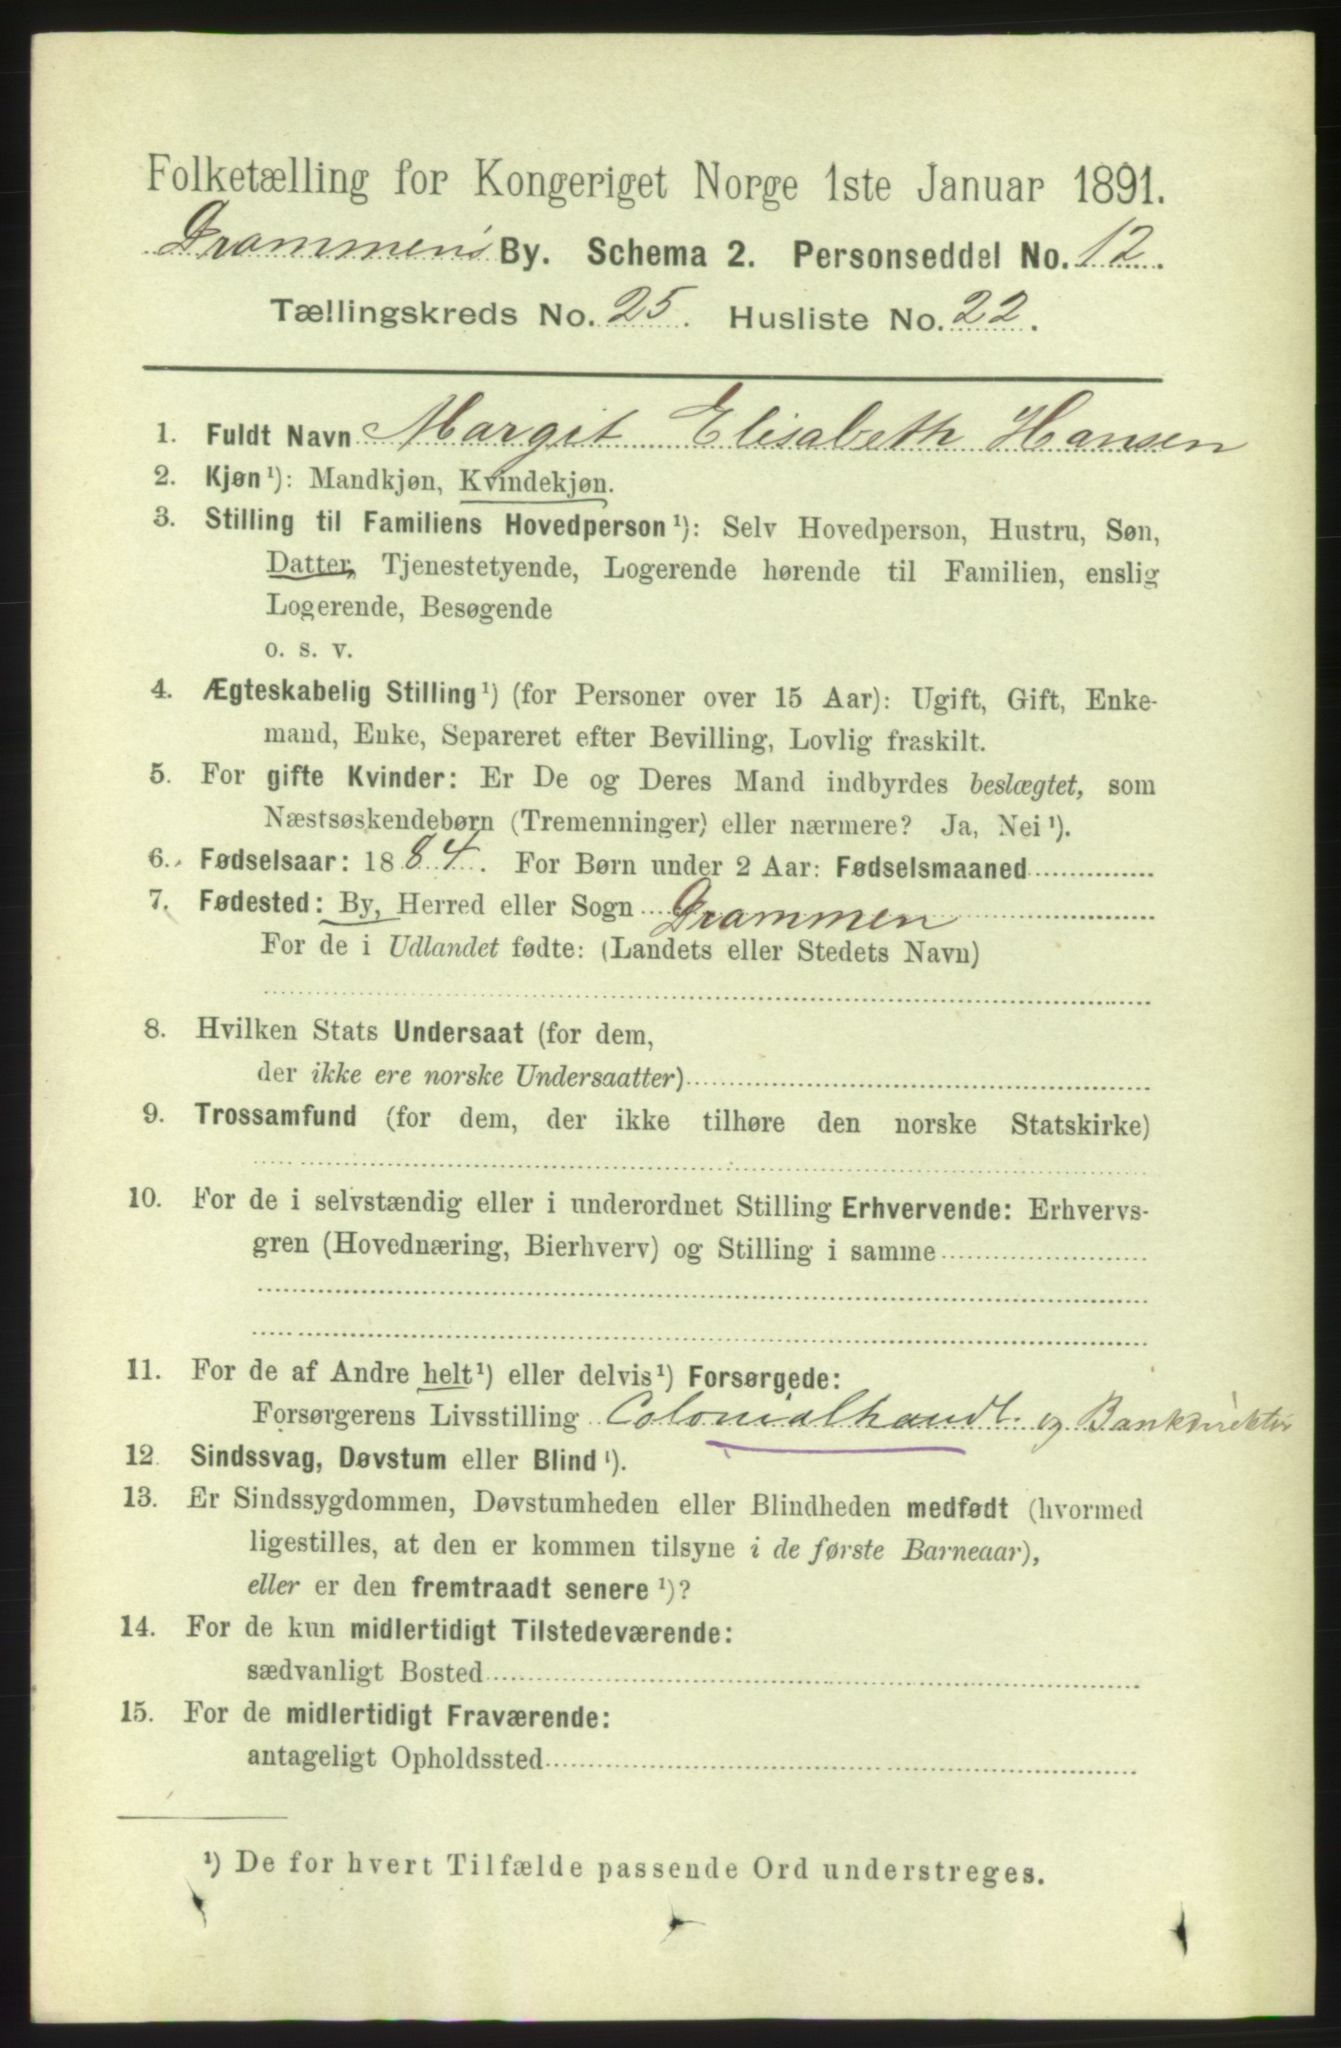 Folketælling for Kongeriget Norge 1ste Januar 1891.
Drammens By. Schema 2. Personseddel No. 12.
Tællingskreds No. 25. Husliste No. 22.
1. Fuldt Navn Margit Elisabeth Hansen
2. Kjøn¹): Mandkjøn, Kvindekjøn.
3. Stilling til Familiens Hovedperson¹): Selv Hovedperson, Hustru, Søn,
Datter, Tjenestetyende, Logerende hørende til Familien, enslig
Logerende, Besøgende
o. s. v.
4. Ægteskabelig Stilling¹) (for Personer over 15 Aar): Ugift, Gift, Enke-
mand, Enke, Separeret efter Bevilling, Lovlig fraskilt.
5. For gifte Kvinder: Er De og Deres Mand indbyrdes beslægtet, som
Næstsøskendebørn (Tremenninger) eller nærmere? Ja, Nei¹).
6. Fødselsaar: 1884. For Børn under 2 Aar: Fødselsmaaned
7. Fødested: By, Herred eller Sogn Drammen
For de i Udlandet fødte: (Landets eller Stedets Navn)
8. Hvilken Stats Undersaat (for dem,
der ikke ere norske Undersaatter)
9. Trossamfund (for dem, der ikke tilhøre den norske Statskirke)
10. For de i selvstændig eller i underordnet Stilling Erhvervende: Erhvervs-
gren (Hovednæring, Bierhverv) og Stilling i samme
11. For de af Andre helt¹) eller delvis¹) Forsørgede:
Forsørgerens Livsstilling Colonialhandl. og Bankdirektør
12. Sindssvag, Døvstum eller Blind¹).
13. Er Sindssygdommen, Døvstumheden eller Blindheden medfødt (hvormed
ligestilles, at den er kommen tilsyne i de første Barneaar),
eller er den fremtraadt senere¹)?
14. For de kun midlertidigt Tilstedeværende:
sædvanligt Bosted
15. For de midlertidigt Fraværende:
antageligt Opholdssted
¹) De for hvert Tilfælde passende Ord understreges.